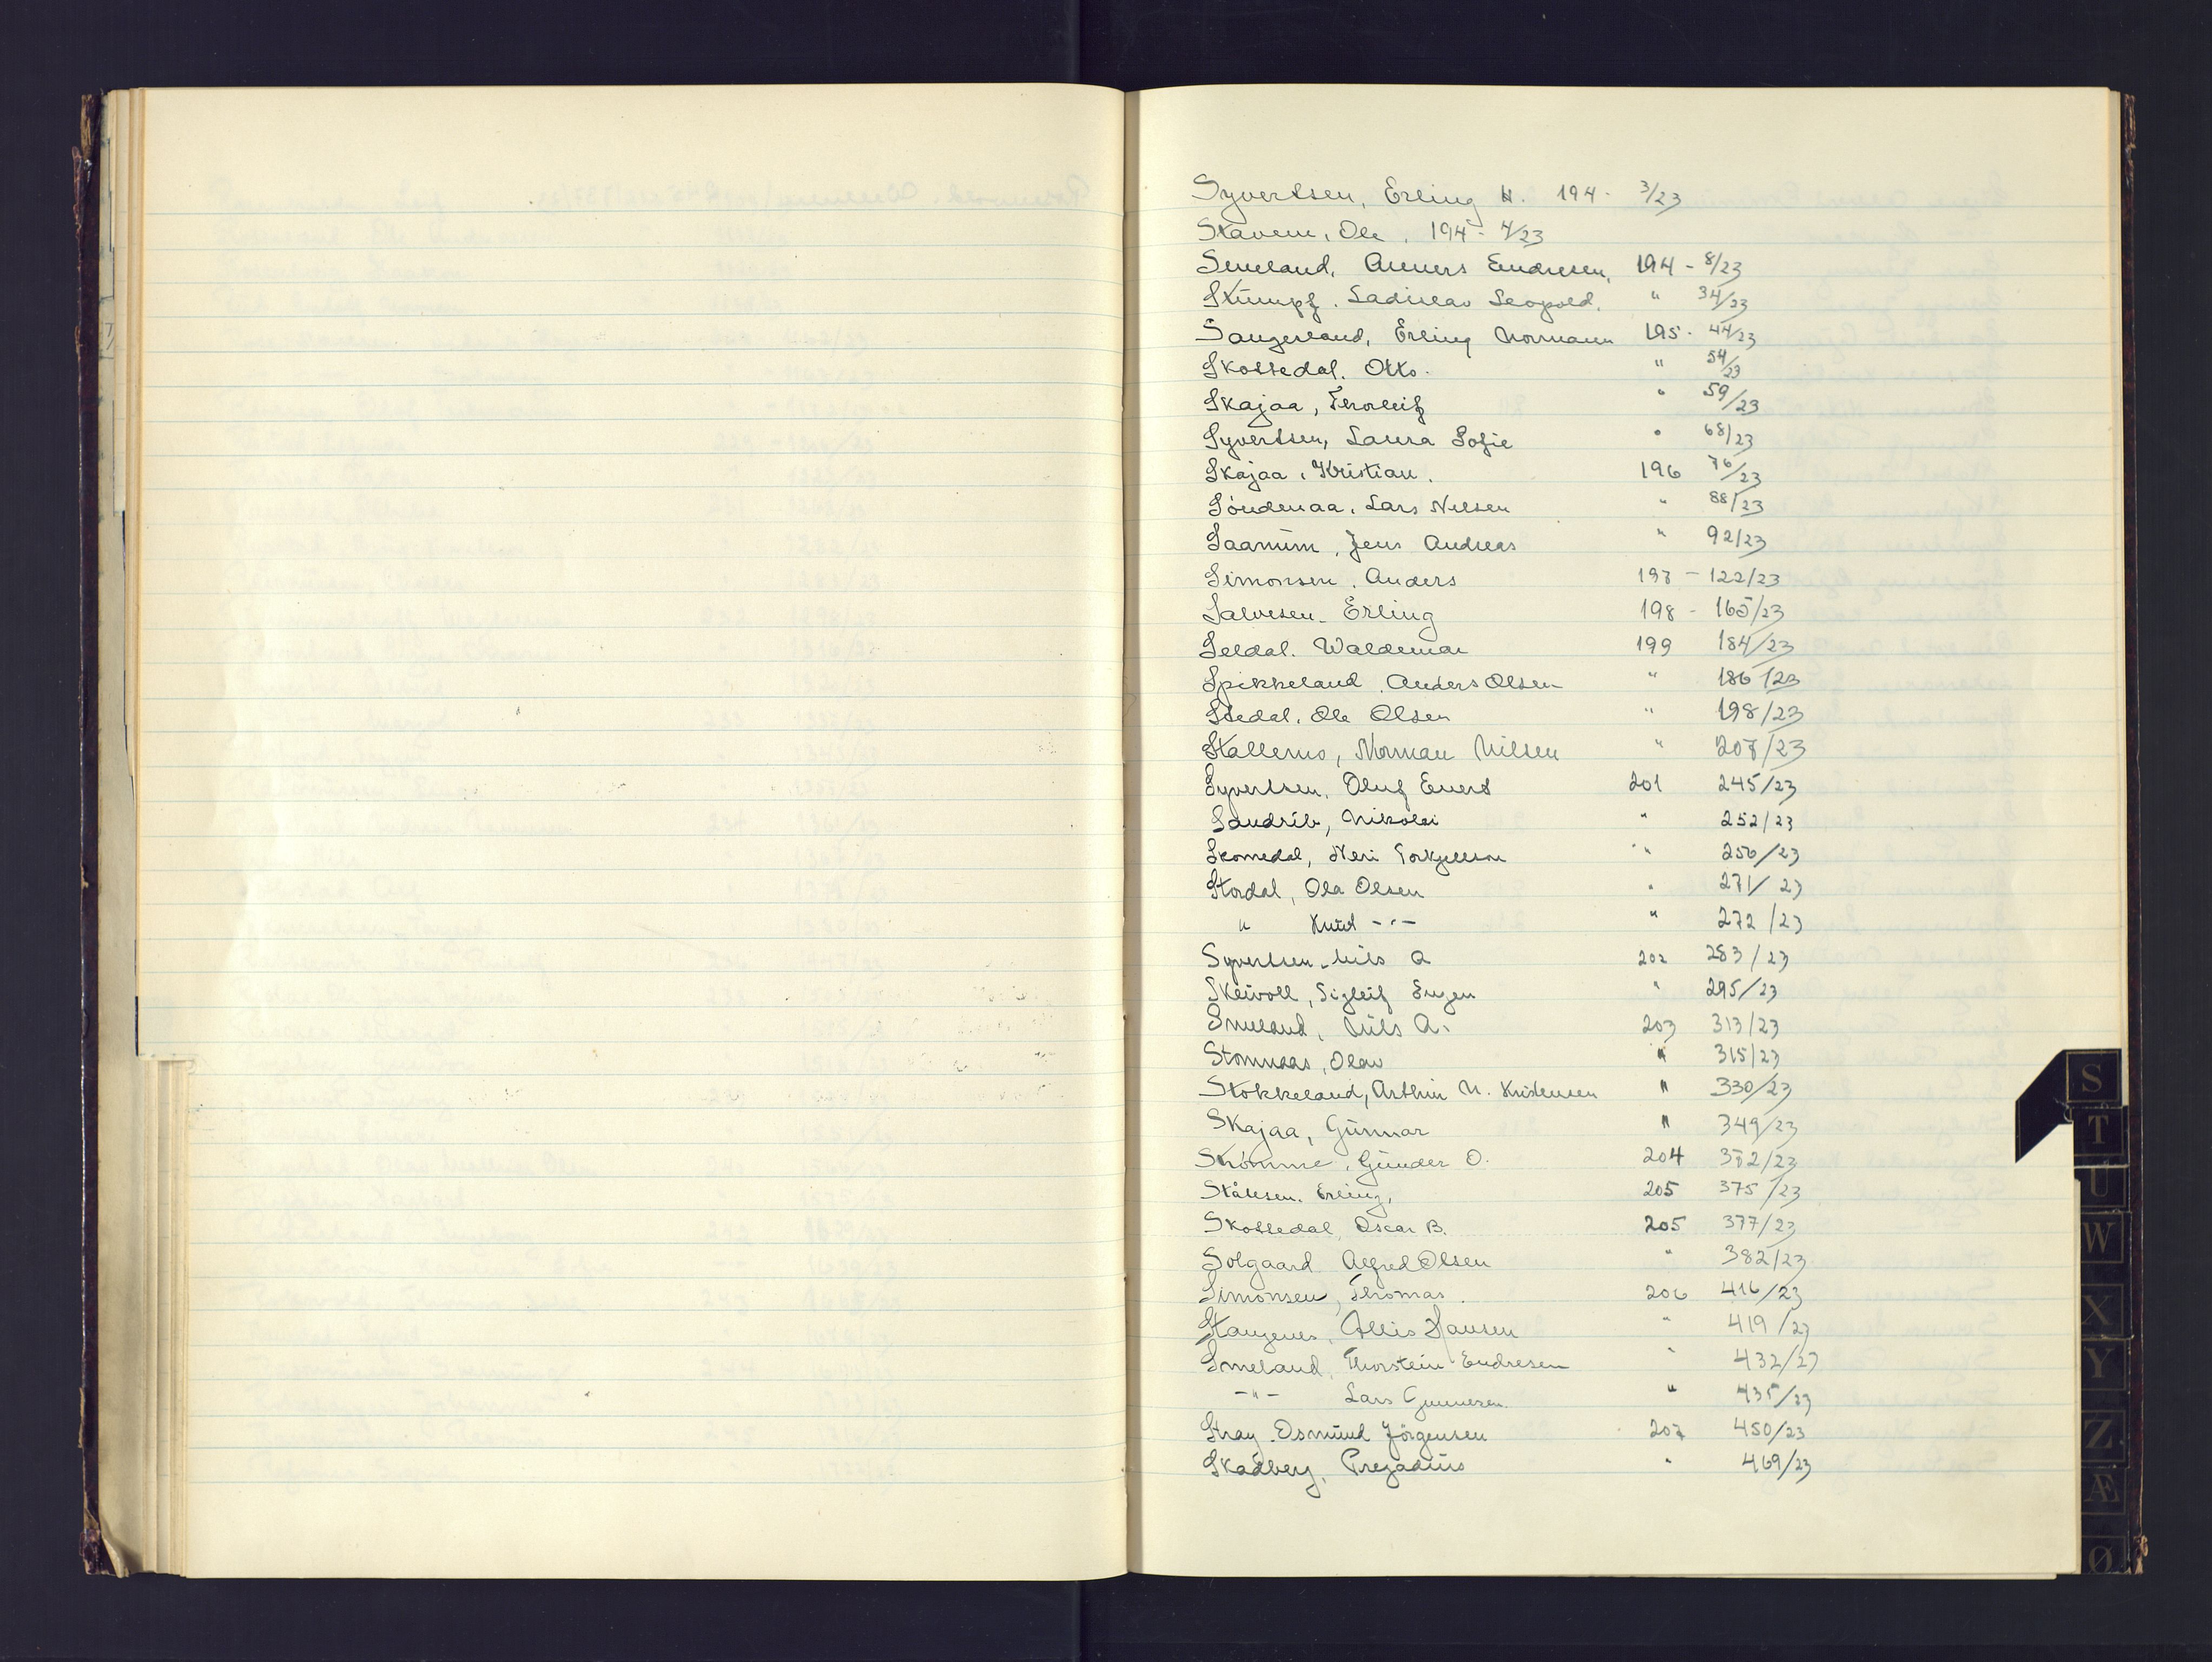 Syvertsen, Erling H. 194 - 3/23
Stavem, Ole. 194 - 4/23
Smeland, Anners Endresen, 194 - 8/23
Stümpf. Ladislav Leopold. " 34/23
Sangesland, Erling Normann 195 - 44/23
Skossedal. Otto. " 54/23
Skajaa, Thorleif " 59/23
Syvertsen, Laura Sofie " 68/23
Skajaa, Kristian. 196 76/23
Söndenaa, Lars Nilsen " 88/23
Saanum, Jens Andreas " 92/23
Simonsen, Anders 197 - 122/23
Salvesen, Erling 198 - 165/23
Seldal. Waldemar 199 184/23
Spikkeland, Anders Olsen " 186/23
Stedal, Ole Olsen " 198/23
Stallemo, Norman Nilsen " 207/23
Syvertsen, Oluf Evert 201 245/23
Sandrib, Nikolai " 252/23
Skomedal, Neri Torkjellson " 256/23
Stordal, Ola Olsen " 271/23
" Knud -"- " 272/23
Syvertsen, Nils A 202 283/23
Skeivoll, Sigleif Eugen " 295/23
Smeland, Nils A. 203 313/23
Stomnaas, Olav " 315/23
Stokkeland, Arthur N. Kristensen " 330/23
Skajaa, Gunnar " 349/23
Skömme, Gunder O. 204 372/23
Stålesen. Erling, 205 375/23
Skossedal, Oscar B. 205 377/23
Solgaard Alfred Olsen " 382/23
Simonsen, Thomas. 206 416/23
Stangenes, Allis Hansen " 419/23
Smeland, Thorstein Endresen " 432/23
-"- Lars Gunnersen. " 435/23
Stray. Osmund Jörgensen 207 450/23
Skadberg, Pregadius " 469/23
S
T
U
W
X
Y
Z
Æ
Ø